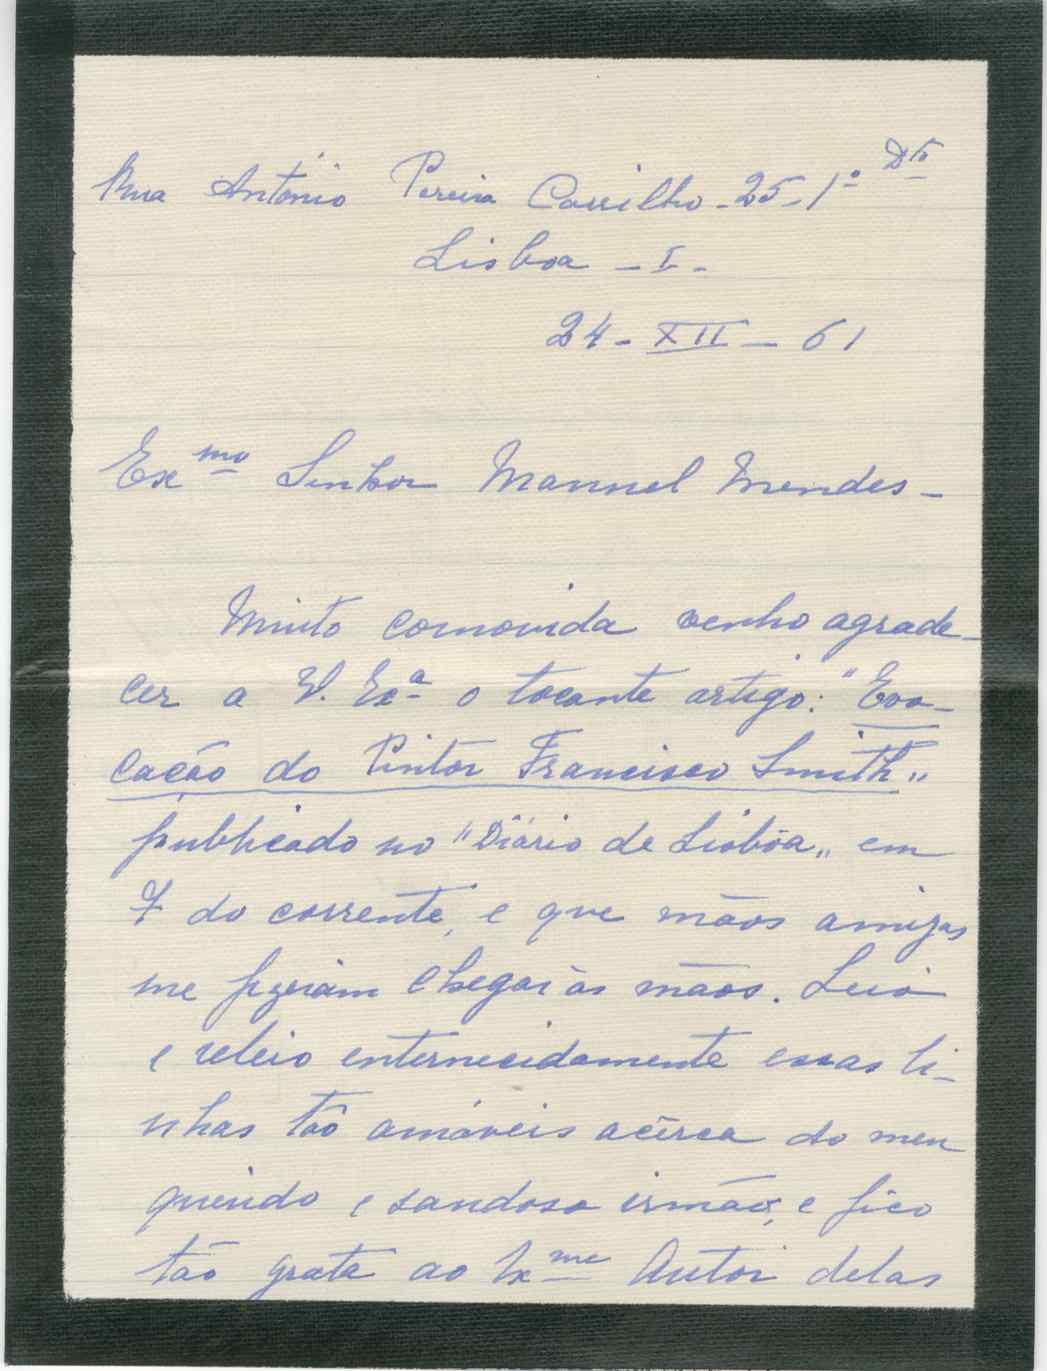 Rua António Pereira Carrilho - 25 - 1º Dto
Lisboa - I -
24 - XII - 61
Exmo Senhor Manuel Mendes -
Muito comovida venho agrade-
cer a V. Exª o tocante artigo: "Evo-
cação do Pintor Francisco Smith"
publicado no "Diário de Lisbôa" em
7 do corrente, e que mãos amigas
me fizeram chegar às mãos. Leio
e releio enternecidamente essas li-
nhas tão amáveis acêrca do meu
querido e saudoso irmão, e fico
tão grata ao Exmo Autor delas